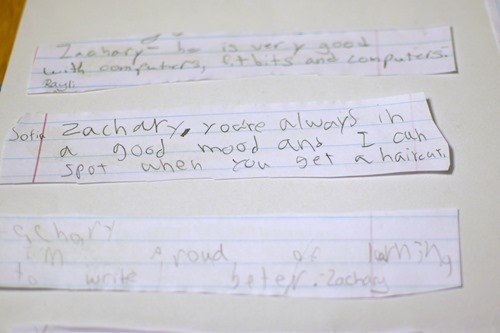 Zachary- he is very good
with computers, fitbits and computers.
Rayli
Sofia Zachary, you're always in
a good mood and I can
spot when you get a haircut.
-achary
I'm proud of lurning
to write beter. Zachary